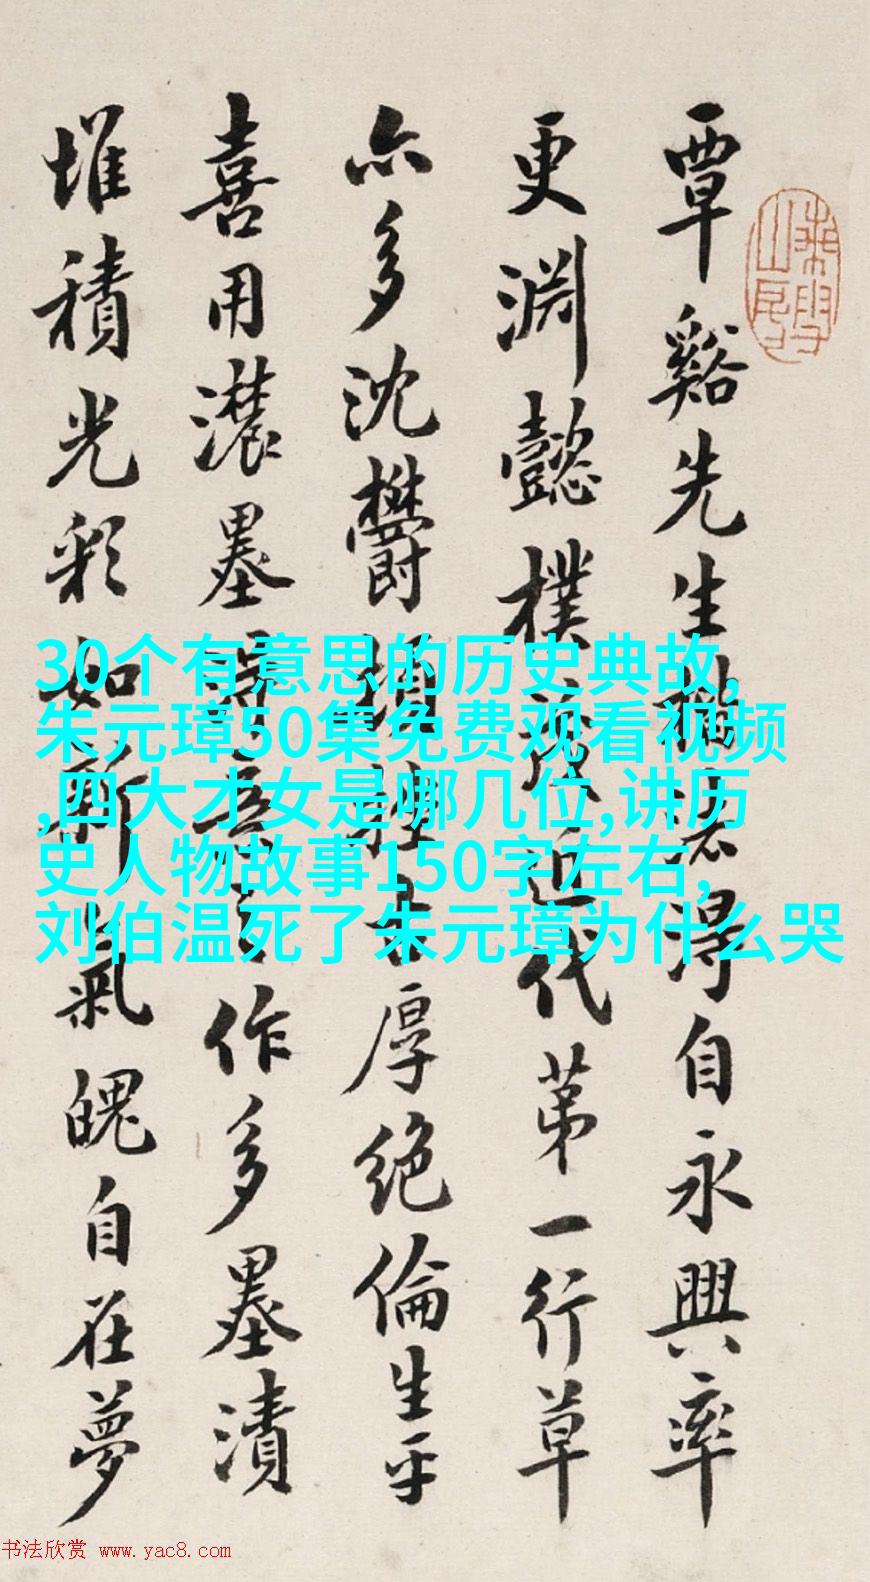 覃谿先生得自永興率
更淵懿樸近代第一行草
亦多沈鬱頓挫古厚絕倫生平
喜用濃墨作多墨漬
堆積光彩如新氣魄自在夢
30个有意思的历史典故,
朱元璋50集免费观看视频
,四大才女是哪几位,讲历
史人物故事150字左右,
刘伯温死了朱元璋为什么哭
书法欣赏 www.yac8.com